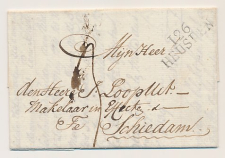 Mijn Heer
126
HEUSDEN
den Heer J. Loopuit
Makelaar in
Te Schiedam